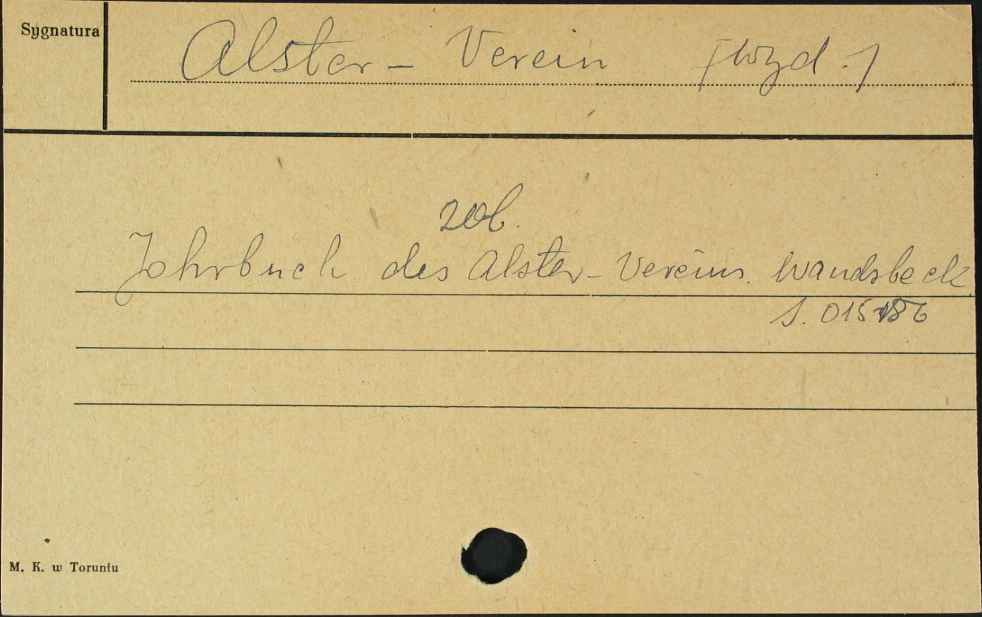 Sygnatura
Alster - Verein [Wyd.]
zob.
Jahrbuch des Alster-Vereins. Wandsbeck
S. 015186
M. K. w Toruniu